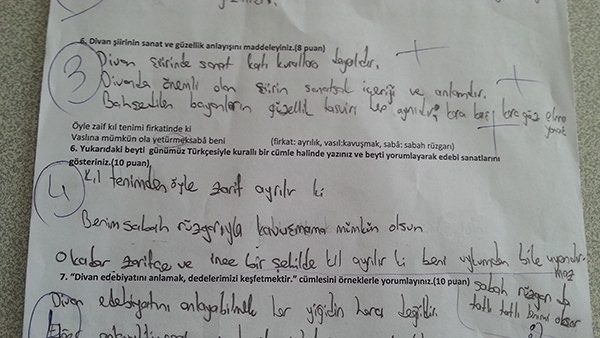 6. Divan şiirinin sanat ve güzellik anlayışını maddeleyiniz.(8 puan)
3
Divan şiirinde sanat katı kurallara dayalıdır.
Divanda önemli olan şiirin sanatsal içeriği ve anlamdır.
Bahsedilen bayanların güzellik tasviri hep aynıdır; kara kaş kara göz elma yanak
Öyle zaif kıl tenimi firkatinde ki
Vaslına mümkün ola yetürmeksabâ beni (firkat: ayrılık, vasıl:kavuşmak, sabâ: sabah rüzgarı)
6. Yukarıdaki beyti günümüz Türkçesiyle kurallı bir cümle halinde yazınız ve beyti yorumlayarak edebi sanatlarını
gösteriniz.(10 puan),
4
Kıl tenimden öyle zarif ayrılır ki
Benim sabah rüzgarıyla kavuşmama mümkün olsun
O kadar zarifçe ve ince bir şekilde kıl ayrılır ki beni uykumdan bile uyandırmaz
7. "Divan edebiyatını anlamak, dedelerimizi keşfetmektir." cümlesini örneklerle yorumlayınız.(10 puan)
sabah rüzgarı da
tatlı tatlı
Divan edebiyatını anlayabilmek her yiğidin harcı değildir.
:)